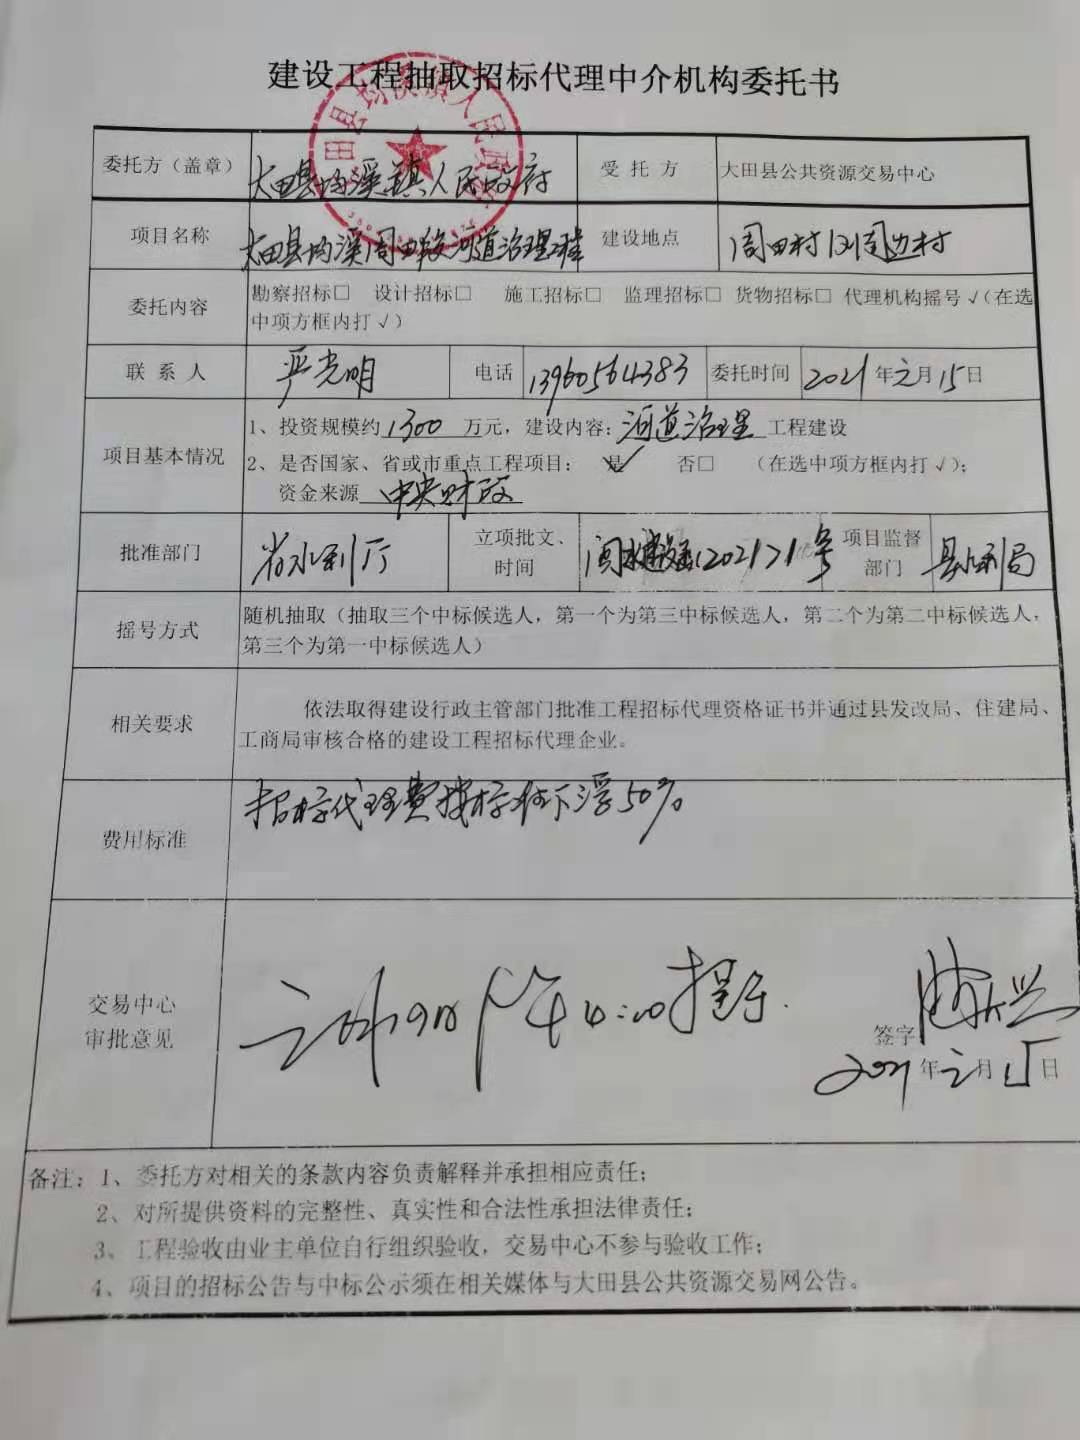 建设工程抽取招标代理中介机构委托书
委托方（盖章） 大田县均溪镇人民政府 受托方 大田县公共资源交易中心
项目名称 大田县均溪周田段河道治理工程 建设地点 周田村及周边村
委托内容 勘察招标□ 设计招标□ 施工招标□ 监理招标□ 货物招标□ 代理机构摇号√（在选
中项方框内打√）
联系人 严光明 电话 13960564383 委托时间 2021年元月15日
项目基本情况 1、投资规模约1300万元，建设内容：河道治理工程建设
2、是否国家、省或市重点工程项目： 是√ 否□ （在选中项方框内打√）；
资金来源 中央财政
批准部门 省水利厅 立项批文、时间 闽水 函(2021)1号 项目监督部门 县水利局
摇号方式 随机抽取（抽取三个中标候选人，第一个为第三中标候选人，第二个为第二中标候选人，
第三个为第一中标候选人）
相关要求 依法取得建设行政主管部门批准工程招标代理资格证书并通过县发改局、住建局、
工商局审核合格的建设工程招标代理企业。
费用标准 招标代理费按标准下浮50%
交易中心
审批意见 元月19日下午4:00摇号.
签字
2021年元月15日
备注：1、委托方对相关的条款内容负责解释并承担相应责任；
2、对所提供资料的完整性、真实性和合法性承担法律责任；
3、工程验收由业主单位自行组织验收，交易中心不参与验收工作；
4、项目的招标公告与中标公示须在相关媒体与大田县公共资源交易网公告。